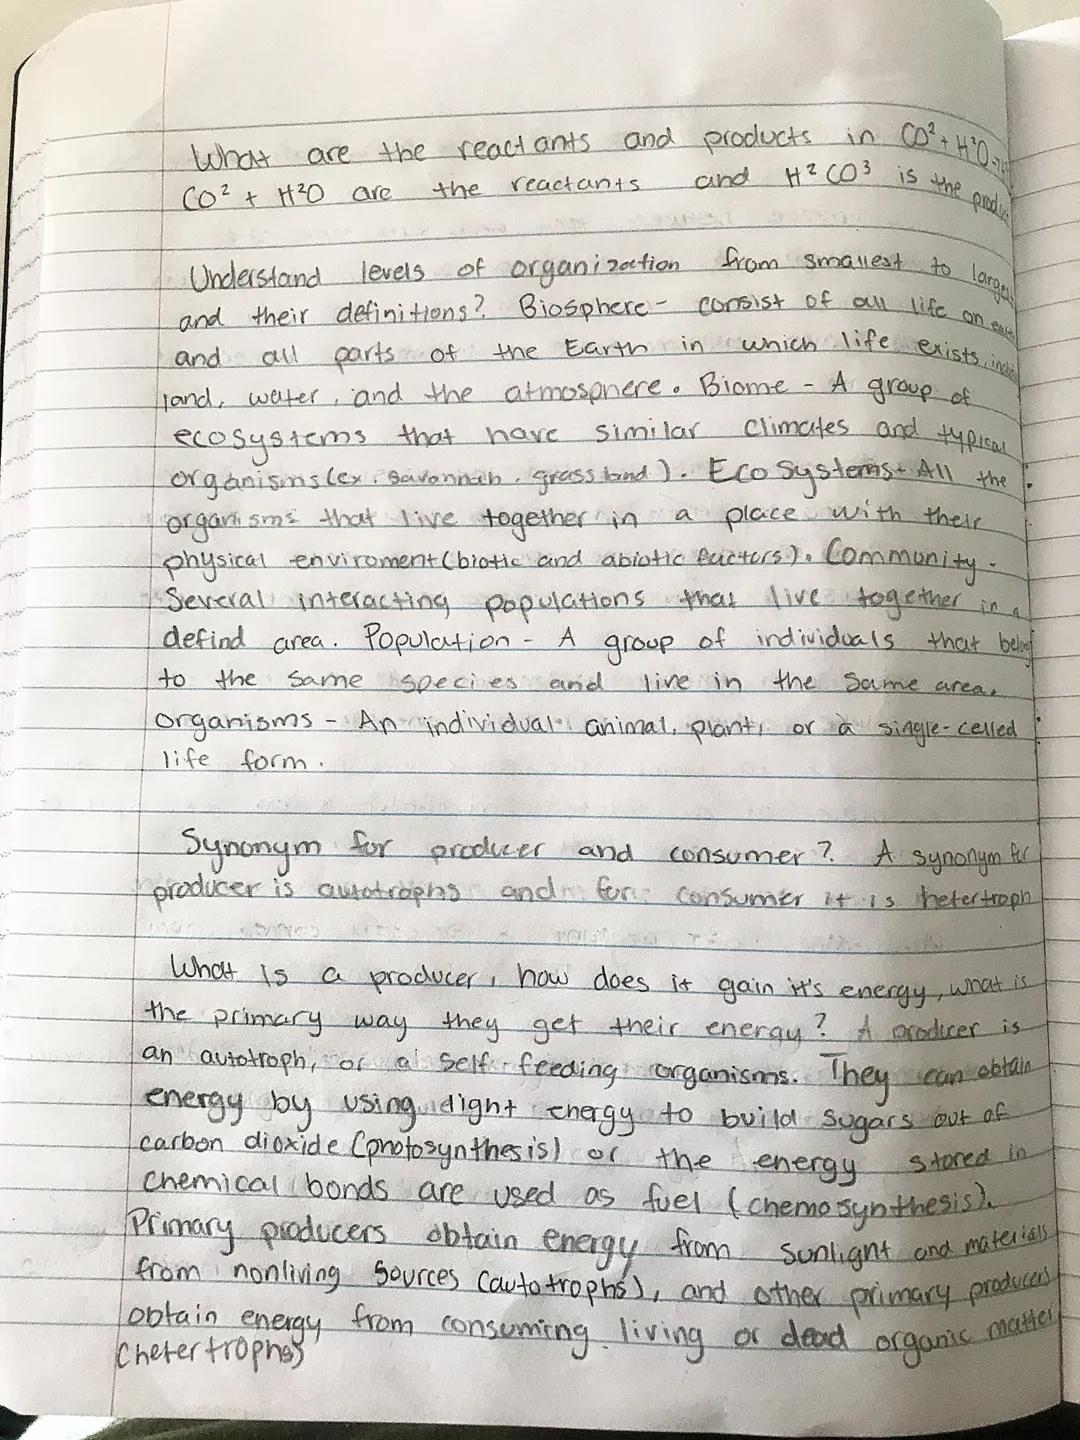 What are the reactants and products in CO² + H²O →
CO² + H²O are the reactants and H² CO³ is the
Understand levels of organization from smallest to
and their definitions? Biosphere - consist of all life on
and all parts of the Earth in which life exists,
land, water, and the atmosphere. Biome - A group of
ecosystems that have similar climates and typical
organisms (ex: savannah, grassland). Eco Systems - All the
organisms that live together in a place with their
physical enviroment (biotic and abiotic factors). Community -
Several interacting populations that live together in a
defind area. Population - A group of individuals that
to the same species and live in the same area.
organisms - An individual animal, plant, or a single-celled
life form.
Synonym for producer and consumer? A synonym for
producer is autotrophs and for consumer it is hetertroph
What is a producer, how does it gain it's energy, what is
the primary way they get their energy? A producer is
an autotroph, or a self-feeding organisms. They can obtain
energy by using light energy to build sugars out of
carbon dioxide (photosynthesis) or the energy stored in
chemical bonds are used as fuel (chemosynthesis).
Primary producers obtain energy from sunlight and materials
from nonliving sources (autotrophs), and other primary producers
obtain energy from consuming living or dead organic matter
(hetertrophs)